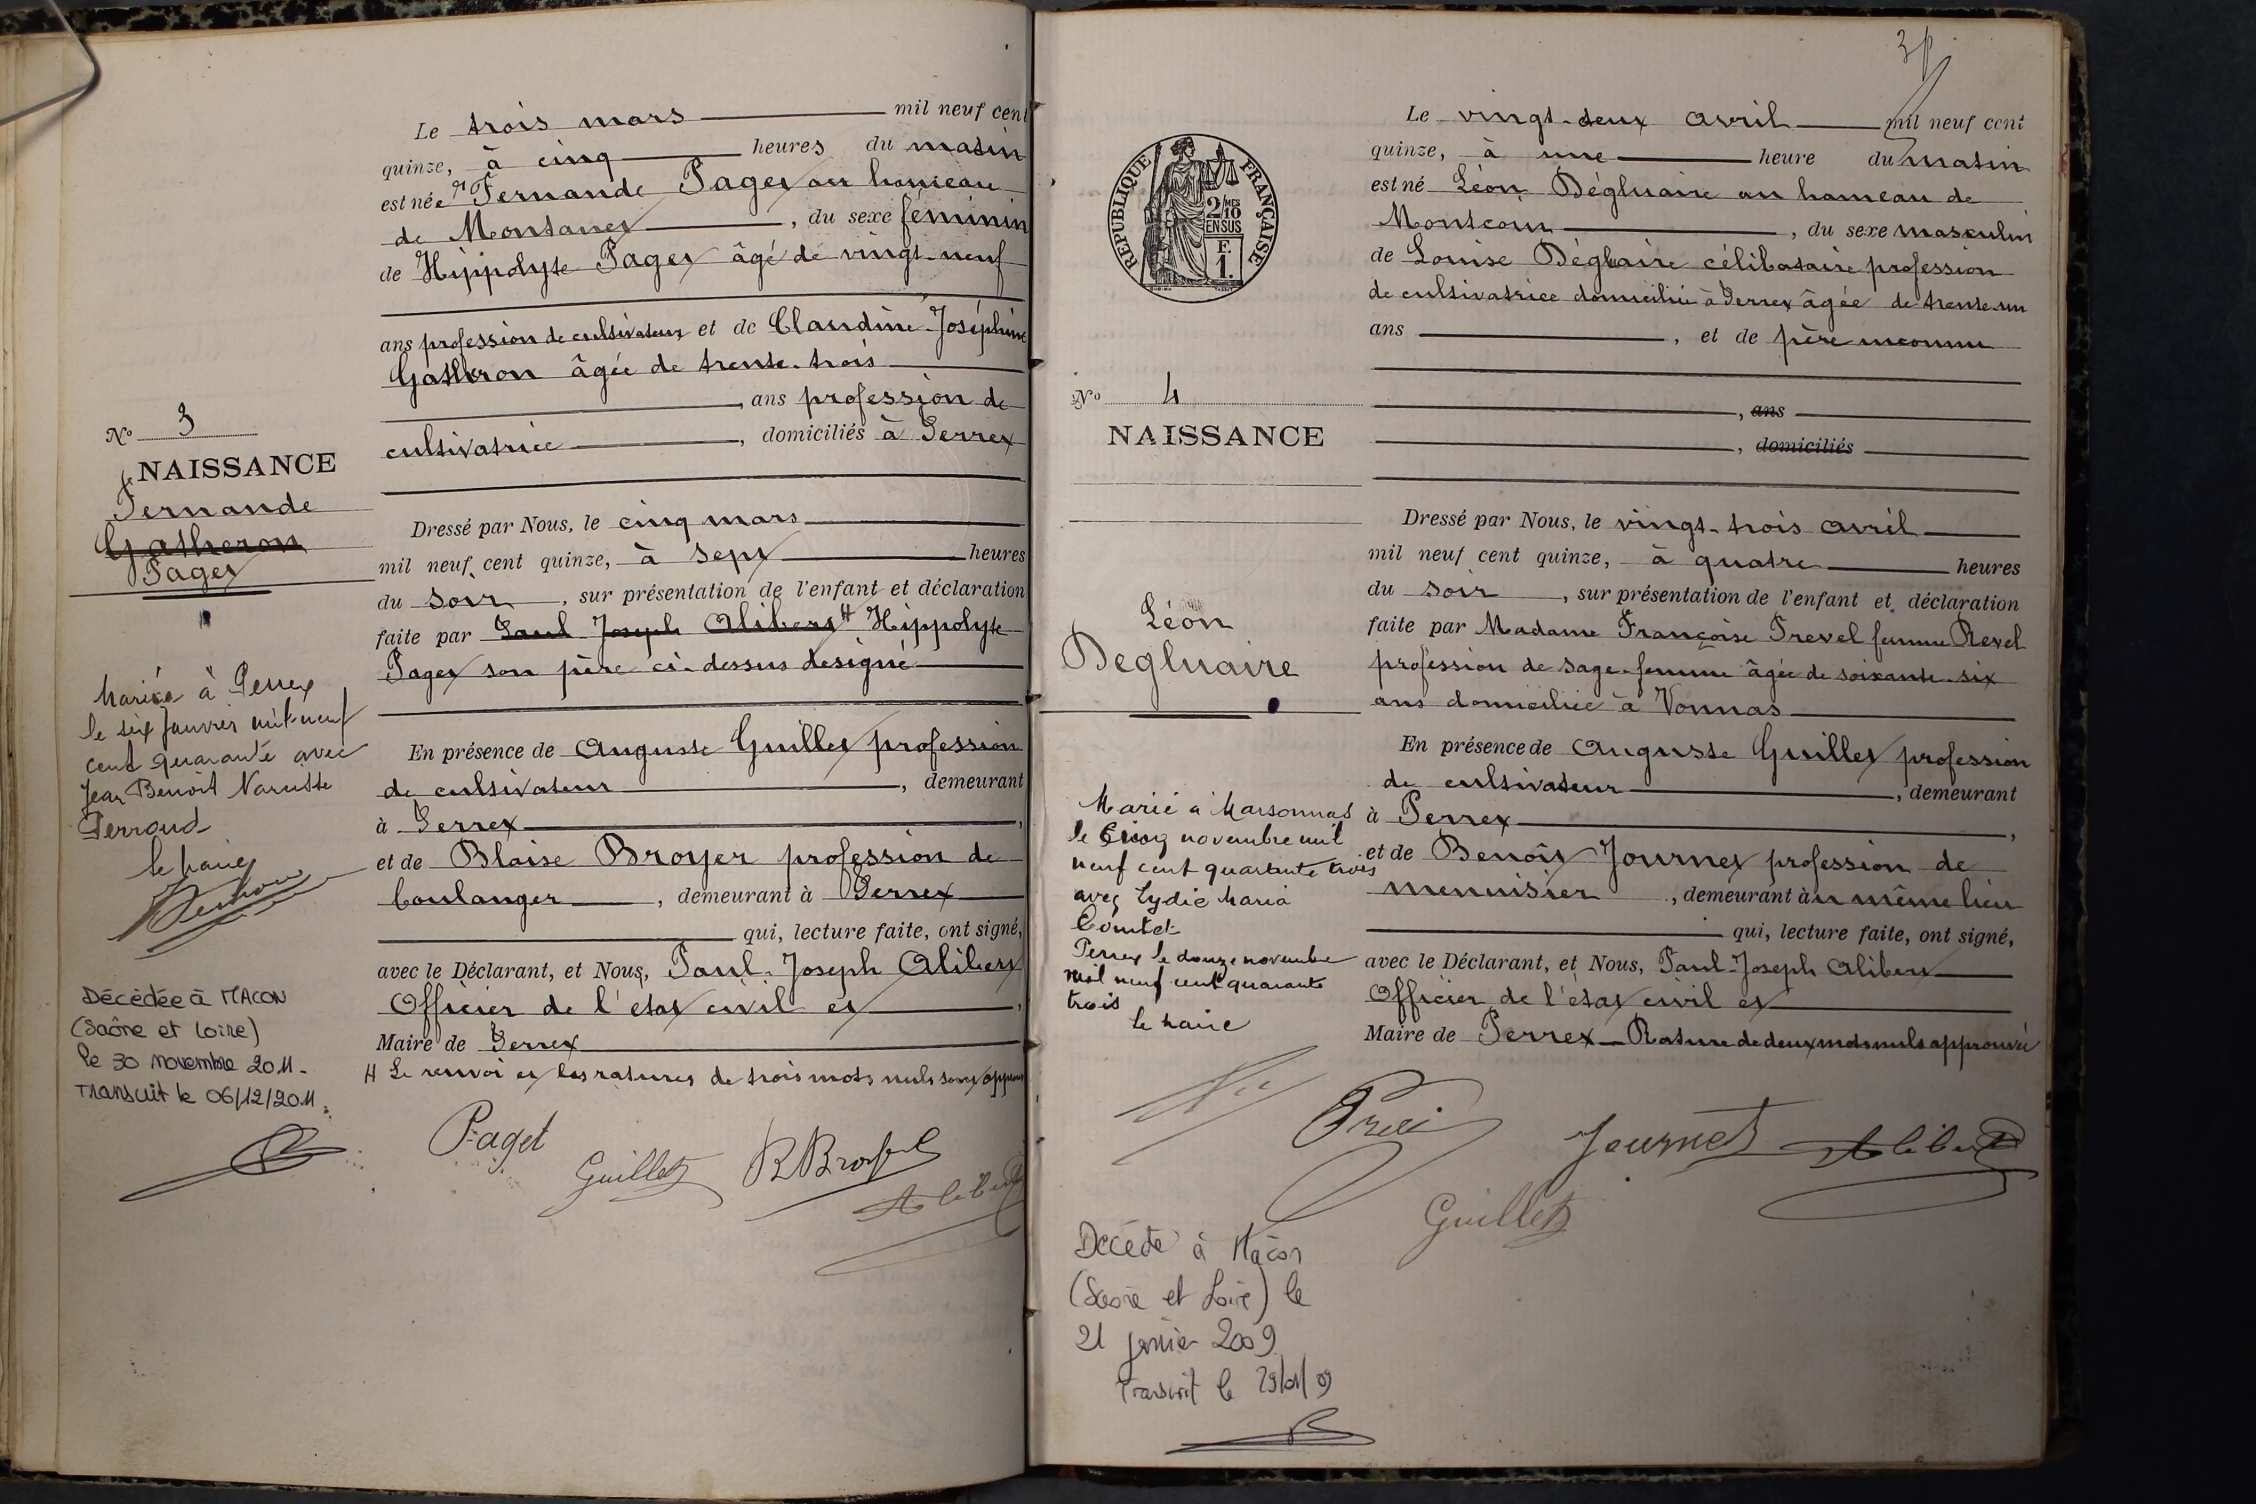 Le trois mars mil neuf cent
quinze, à cinq heures du matin
est née Fernande Paget au hameau
de Montanet, du sexe féminin
de Hippolyte Paget âgé de vingt-neuf
ans profession de cultivateur et de Claudine-Joséphine
Gatheron âgée de trente-trois
, ans profession de
cultivatrice, domiciliés à Perrex
Dressé par Nous, le cinq mars
mil neuf cent quinze, à sept heures
du soir, sur présentation de l'enfant et déclaration
faite par Paul Joseph Alibert H Hippolyte
Paget son père ci-dessus désigné
En présence de Auguste Guillet profession
de cultivateur, demeurant
à Perrex,
et de Blaise Broyer profession de
boulanger, demeurant à Perrex
qui, lecture faite, ont signé,
avec le Déclarant, et Nous, Paul-Joseph Alibert
Officier de l'état civil et,
Maire de Perrex
H Le renvoi et les ratures de trois mots nuls sont
Paget
Guillet
Alibert
No 3
NAISSANCE
Fernande
Gatheron
Paget
Mariée à Perrex
le six Janvier mil neuf
cent quarante avec
Jean Benoit
Perroud
le maire
Décédée à MACON
(Saône et Loire)
le 30 novembre 2011.
Transcrit le 06/12/2011.
Le vingt-deux avril mil neuf cent
quinze, à une heure du matin
est né Léon Dégluaire au hameau de
Montcoin, du sexe masculin
de Louise Dégluaire célibataire profession
de cultivatrice domiciliée à Perrex âgée de trente-un
ans, et de père inconnu
, ans
, domiciliés
Dressé par Nous, le vingt-trois avril
mil neuf cent quinze, à quatre heures
du soir, sur présentation de l'enfant et déclaration
faite par Madame Françoise Trevel femme Revel
profession de sage-femme âgée de soixante-six
ans domiciliée à Vonnas
En présence de Auguste Guillet profession
de cultivateur, demeurant
à Perrex,
et de Benoît Journet profession de
menuisier, demeurant au même lieu
qui, lecture faite, ont signé,
avec le Déclarant, et Nous, Paul-Joseph Alibert
Officier de l'état civil et
Maire de Perrex Rature de deux mots nuls approuvée
Journet
Alibert
Guillet
RÉPUBLIQUE FRANÇAISE
2/10MES
EN SUS
F.
1.
No 4
NAISSANCE
Léon
Degluaire
Marié à Marsonnas
le cinq novembre mil
neuf cent quarante trois
avec Lydie Maria
Comtet
Perrex le douze novembre
mil neuf cent quarante
trois
le maire
Décédé à Mâcon
(Saône et Loire) le
21 janvier 2009
Transcrit le 29/01/09